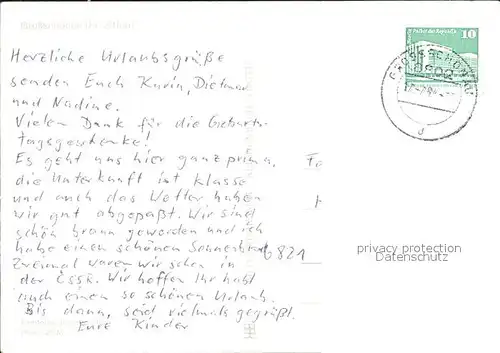 Herzliche Urlaubsgrüße
senden Euch Karin, Dietmar
und Nadine.
Vielen Dank für die Geburts-
tagsgeschenke!
Es geht uns hier ganz prima,
die Unterkunft ist klasse
und auch das Wetter haben
wir gut abgepaßt. Wir sind
schön braun geworden und ich
habe einen schönen Sonnenbrand
Zweimal waren wir schon in
der ČSSR. Wir hoffen Ihr habt
auch einen so schönen Urlaub.
Bis dann, seid vielmals gegrüßt.
Eure Kinder
6821
Palast der Republik
10
GROSSSCHÖNAU
8802
d
privacy protection
Datenschutz